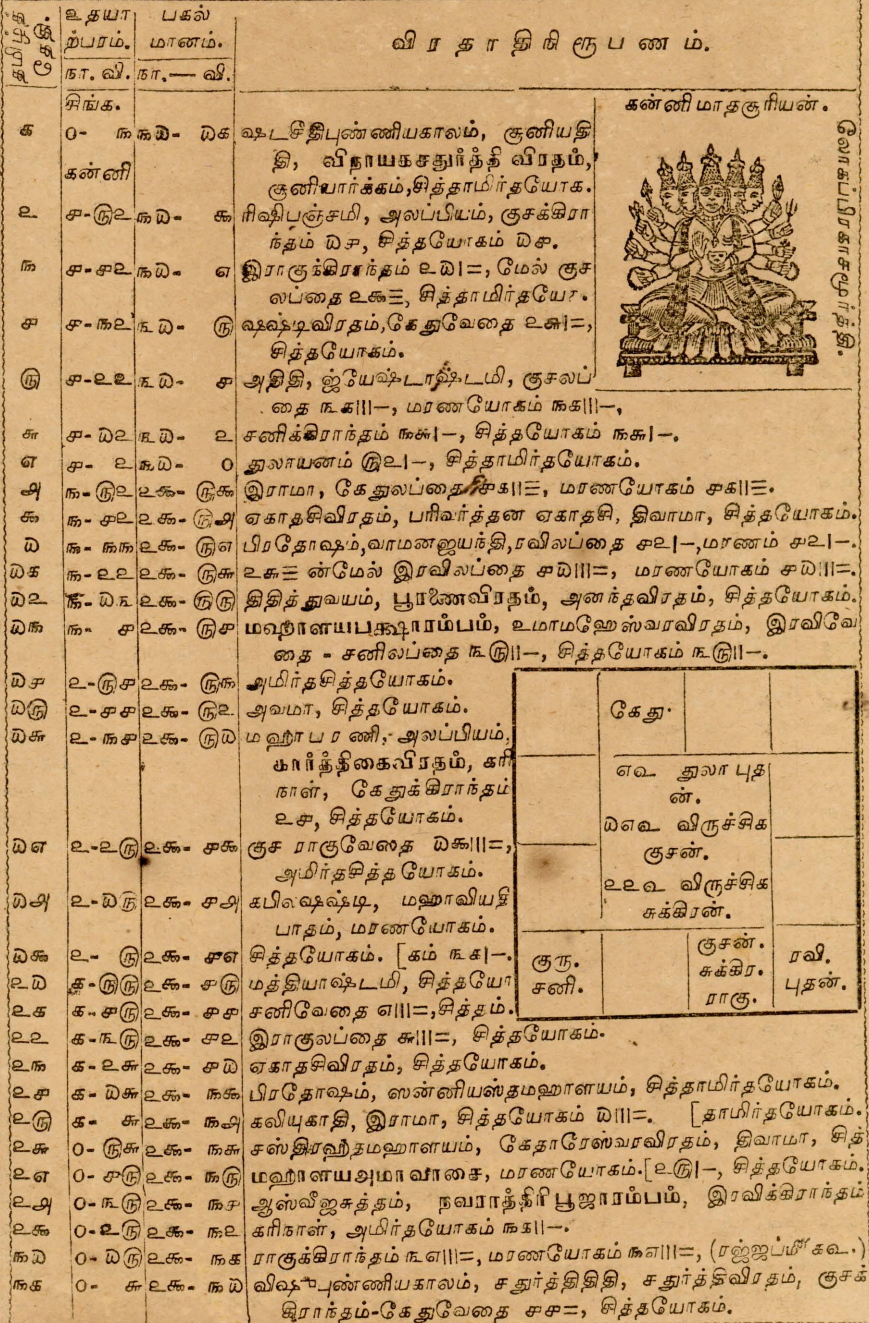 தமிழ்த்தேதி.
உதயா பகல்
ற்பரம். மானம். விரதாதிநிரூபணம்.
நா. வி. நா.— வி.
சிங்க. கன்னிமாதசூரியன்.
லோகப்பிரகாசமூர்த்தி.
௧ ௦- ௩ ௩௰- ௰௧ ஷடசீதிபுண்ணியகாலம், சூனியதி
தி, விநாயகசதுர்த்தி விரதம்,
கன்னி சூனியார்க்கம், சித்தாமிர்தயோக.
௨ ௪-௫௨ ௩௰- ௯ ரிஷிபஞ்சமி, அலப்பியம், குசகிரா
ந்தம் ௰௪, சித்தயோகம் ௰௪.
௩ ௪-௪௨ ௩௰- ௭ இராகுக்கிராந்தம் ௨௰|=, மேல் குச
லப்தை ௨௯☰, சித்தாமிர்தயோ.
௪ ௪-௩௨ ௩௰- ௫ ஷஷ்டிவிரதம்,கேதுவேதை ௨௬|=,
சித்தயோகம்.
௫ ௪-௨௨ ௩௰- ௪ அதிதி, ஜ்யேஷ்டாஷ்டமி, குசலப்
தை ௩௧|||–, மரணயோகம் ௩௧|||–,
௬ ௪-௰௨ ௩௰- ௨ சனிக்கிராந்தம் ௩௬|–, சித்தயோகம் ௩௬|–.
௭ ௪- ௨ ௩௰- ௦ துலாயனம் ௫௨|–, சித்தாமிர்தயோகம்.
௮ ௩-௫௨ ௨௯-௫௯ இராமா, கேதுலப்தை ௪௧||☰, மரணயோகம் ௪௧||☰.
௯ ௩-௪௨ ௨௯-௫௮ ஏகாதசிவிரதம், பரிவர்த்தன ஏகாதசி, திவாமா, சித்தயோகம்.
௰ ௩-௩௩ ௨௯-௫௭ பிரதோஷம்,வாமனஜயந்தி,ரவிலப்தை ௪௨|–,மரணம் ௪௨|–.
௰௧ ௩-௨௨ ௨௯-௫௬ ௨௬☰ ன்மேல் இரவிலப்தை ௪௰|||=, மரணயோகம் ௪௰|||=.
௰௨ ௩-௰௩ ௨௯-௫௫ திதித்துவயம், பூரணைவிரதம், அனந்தவிரதம், சித்தயோகம்.
௰௩ ௩- ௪ ௨௯-௫௪ மஹாளயபக்ஷாரம்பம், உமாமஹேஸ்வரவிரதம், இரவிவே
தை - சனிலப்தை ௩௫||–, சித்தயோகம் ௩௫||–.
௰௪ ௨-௫௪ ௨௯-௫௩ அமிர்தசித்தயோகம்.
௰௫ ௨-௪௪ ௨௯-௫௨ அவமா, சித்தயோகம்.
௰௬ ௨-௩௪ ௨௯-௫௰ மஹாபரணி, அலப்பியம்,
கார்த்திகைவிரதம், கரி
நாள், கேதுக்கிராந்தம்
௨௪, சித்தயோகம்.
௰௭ ௨-௨௫ ௨௯-௪௯ குச ராகுவேதை ௰௯|||=,
அமிர்தசித்தயோகம்.
௰௮ ௨-௰௫ ௨௯-௪௮ கபிலஷஷ்டி, மஹாவியதி
பாதம், மரணயோகம்.
௰௯ ௨- ௫ ௨௯-௪௭ சித்தயோகம். [கம் ௩௧|–.
௨௰ ௧-௫௫ ௨௯-௪௫ மத்தியாஷ்டமி, சித்தயோ
௨௧ ௧-௪௫ ௨௯-௪௪ சனிவேதை ௭|||=,சித்தம்.
கேது.
௭௳ துலா புத
ன்.
௰௭௳ விருச்சிக
குசன்.
௨௨௳ விருச்சிக
சுக்கிரன்.
குரு.
சனி.
குசன்.
சுக்கிர.
ராகு.
ரவி.
புதன்.
௨௨ ௧-௩௫ ௨௯-௪௨ இராகுலப்தை ௬|||=, சித்தயோகம்.
௨௩ ௧-௨௬ ௨௯-௪௰ ஏகாதசிவிரதம், சித்தயோகம்.
௨௪ ௧-௰௬ ௨௯-௩௯ பிரதோஷம், ஸன்னியஸ்தமஹாளயம், சித்தாமிர்தயோகம்.
௨௫ ௧- ௬ ௨௯-௩௮ கலியுகாதி, இராமா, சித்தயோகம் ௰|||=. [தாமிர்தயோகம்.
௨௬ ௦-௫௬ ௨௯-௩௬ சஸ்திரஹதமஹாளயம், கேதாரேஸ்வரவிரதம், திவாமா, சித்
௨௭ ௦-௪௫ ௨௯-௩௫ மஹாளயஅமாவாசை, மரணயோகம்.[௨௫|–, சித்தயோகம்.
௨௮ ௦-௩௫ ௨௯-௩௪ ஆஸ்வீஜசுத்தம், நவராத்திரிபூஜாரம்பம், இரவிக்கிராந்தம்
௨௯ ௦-௨௫ ௨௯-௩௨ கரிநாள், அமிர்தயோகம் ௩௧||–.
௩௰ ௦-௰௫ ௨௯-௩௧ ராகுக்கிராந்தம் ௩௭|||=, மரணயோகம் ௩௭|||=,
௩௧ ௦- ௬ ௨௯-௩௰ விஷுபுண்ணியகாலம், சதுர்த்திதிதி, சதுர்த்திவிரதம், குசக்
கிராந்தம்-கேதுவேதை ௪௪=, சித்தயோகம்.